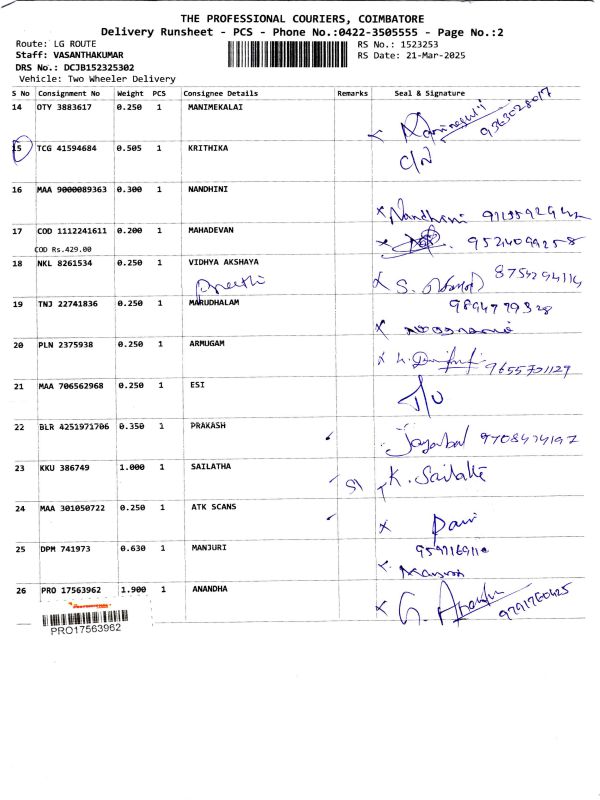 THE PROFESSIONAL COURIERS, COIMBATORE
Delivery Runsheet - PCS - Phone No.:0422-3505555 - Page No.:2
Route: LG ROUTE RS No.: 1523253
Staff: VASANTHAKUMAR RS Date: 21-Mar-2025
DRS No.: DCJB152325302
Vehicle: Two Wheeler Delivery
S No Consignment No Weight PCS Consignee Details Remarks Seal & Signature
14 OTY 3883617 0.250 1 MANIMEKALAI
9363028017
15 TCG 41594684 0.505 1 KRITHIKA C/N
16 MAA 9000089363 0.300 1 NANDHINI
x Nandhini
17 COD 1112241611 0.200 1 MAHADEVAN
x 9524099258
COD Rs.429.00
18 NKL 8261534 0.250 1 VIDHYA AKSHAYA
Preethi x S. 8754294114
19 TNJ 22741836 0.250 1 MARUDHALAM 9894779328
20 PLN 2375938 0.250 1 ARMUGAM
x 9655721129
21 MAA 706562968 0.250 1 ESI
22 BLR 4251971706 0.350 1 PRAKASH
9708474197
23 KKU 386749 1.000 1 SAILATHA
K. Sailatha
24 MAA 301050722 0.250 1 ATK SCANS
x
25 DPM 741973 0.630 1 MANJURI
26 PRO 17563962 1.900 1 ANANDHA
x G. 9791760425
PRO17563962